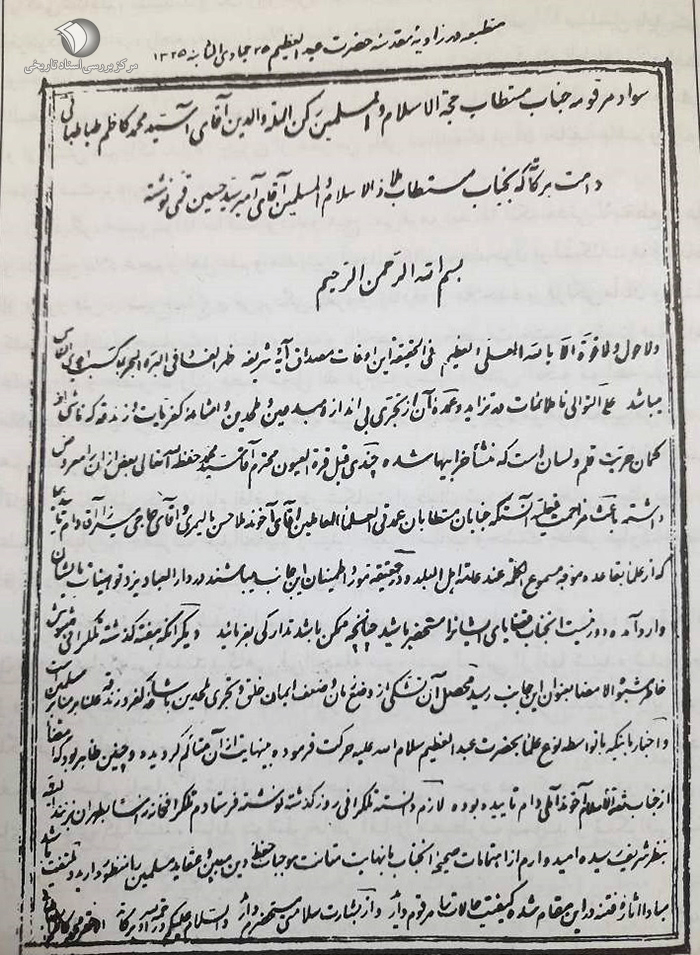 مرکز بررسی اسناد تاریخی
منطبعه در زاویه مقدسه حضرت عبدالعظیم ۲۵ جمادی الثانیه ۱۳۲۵
سواد مرقومه جناب مستطاب حجة الاسلام و المسلمین رکن الملة والدین آقای آسید محمد کاظم طباطبائی
دامت برکاته که بجناب مستطاب ملاذ الاسلام و المسلمین آقای آمیر سید حسین قمی نوشته
بسم الله الرحمن الرحیم
ولا حول ولا قوة الا بالله العلی العظیم فی الحقیقه این اوقات مصداق آیه شریفه ظهر الفساد فی البر و البحر بما کسبت ایدی الناس
میباشد علی التوالی ناملائمات در تزاید و عمده آن از تجری بی اندازه مبدعین و ملحدین و اشاعه کفریات و زندقه که ناشی از
گمان حریت قلم و لسان است که منشأ خرابیها شده چندی قبل قرة العیون محترم آقا سید محمد حفظه الله تعالی بعض از آن را معروض
داشته باعث مزاحمت فعلیه آنستکه جنابان مستطابان عمدتی العلماء العاملین آقای آخوند ملا حسن و آقای حاجی میرزا آقا دام تاییدهما
که از علما بقاعده موجه مسموع الکلمه عند عامه اهل البلد و در حقیقه مورد اطمینان این جانب میباشند در دار العباد یزد توهینات بایشان
وارد آمده دور نیست انجناب قضایای ایشانرا مستحضر باشید چنانچه ممکن باشد تدارکی بفرمائید و دیگر آنکه هفته گذشته تلگرافی
خاطر مشوش الامضا بعنوان این جانب رسید محصل آن تشکی از وضع زمان و ضعف ایمان خلق و تجری ملحدین باشاعه کفر و زندقه علنا بر منابر مسلمین
و اخبار باینکه بانواسطه نوع علما بحضرت عبدالعظیم سلام الله علیه حرکت فرموده بینهایت از آن متألم گردیده و چنین ظاهر بود که امضا
از جناب ثقة الاسلام آخوند آملی دام تاییده بوده لازم دانسته تلگرافی روز گذشته نوشته فرستادم تلگرافخانه انشاء بطهران بزنند البته
بنظر شریف رسیده امیدوارم از اهتمامات صحیحه انجناب با نهایت متانت موجبات حفظ دین مبین و عقاید مسلمین را منظور دارید و ملتفت باشید
مبادا اثاره فتنه در این مقام شده کیفیت حالات را مرقوم دارید و از بشارت سلامتی مستحضرم دارید والسلام علیکم و رحمة الله و برکاته